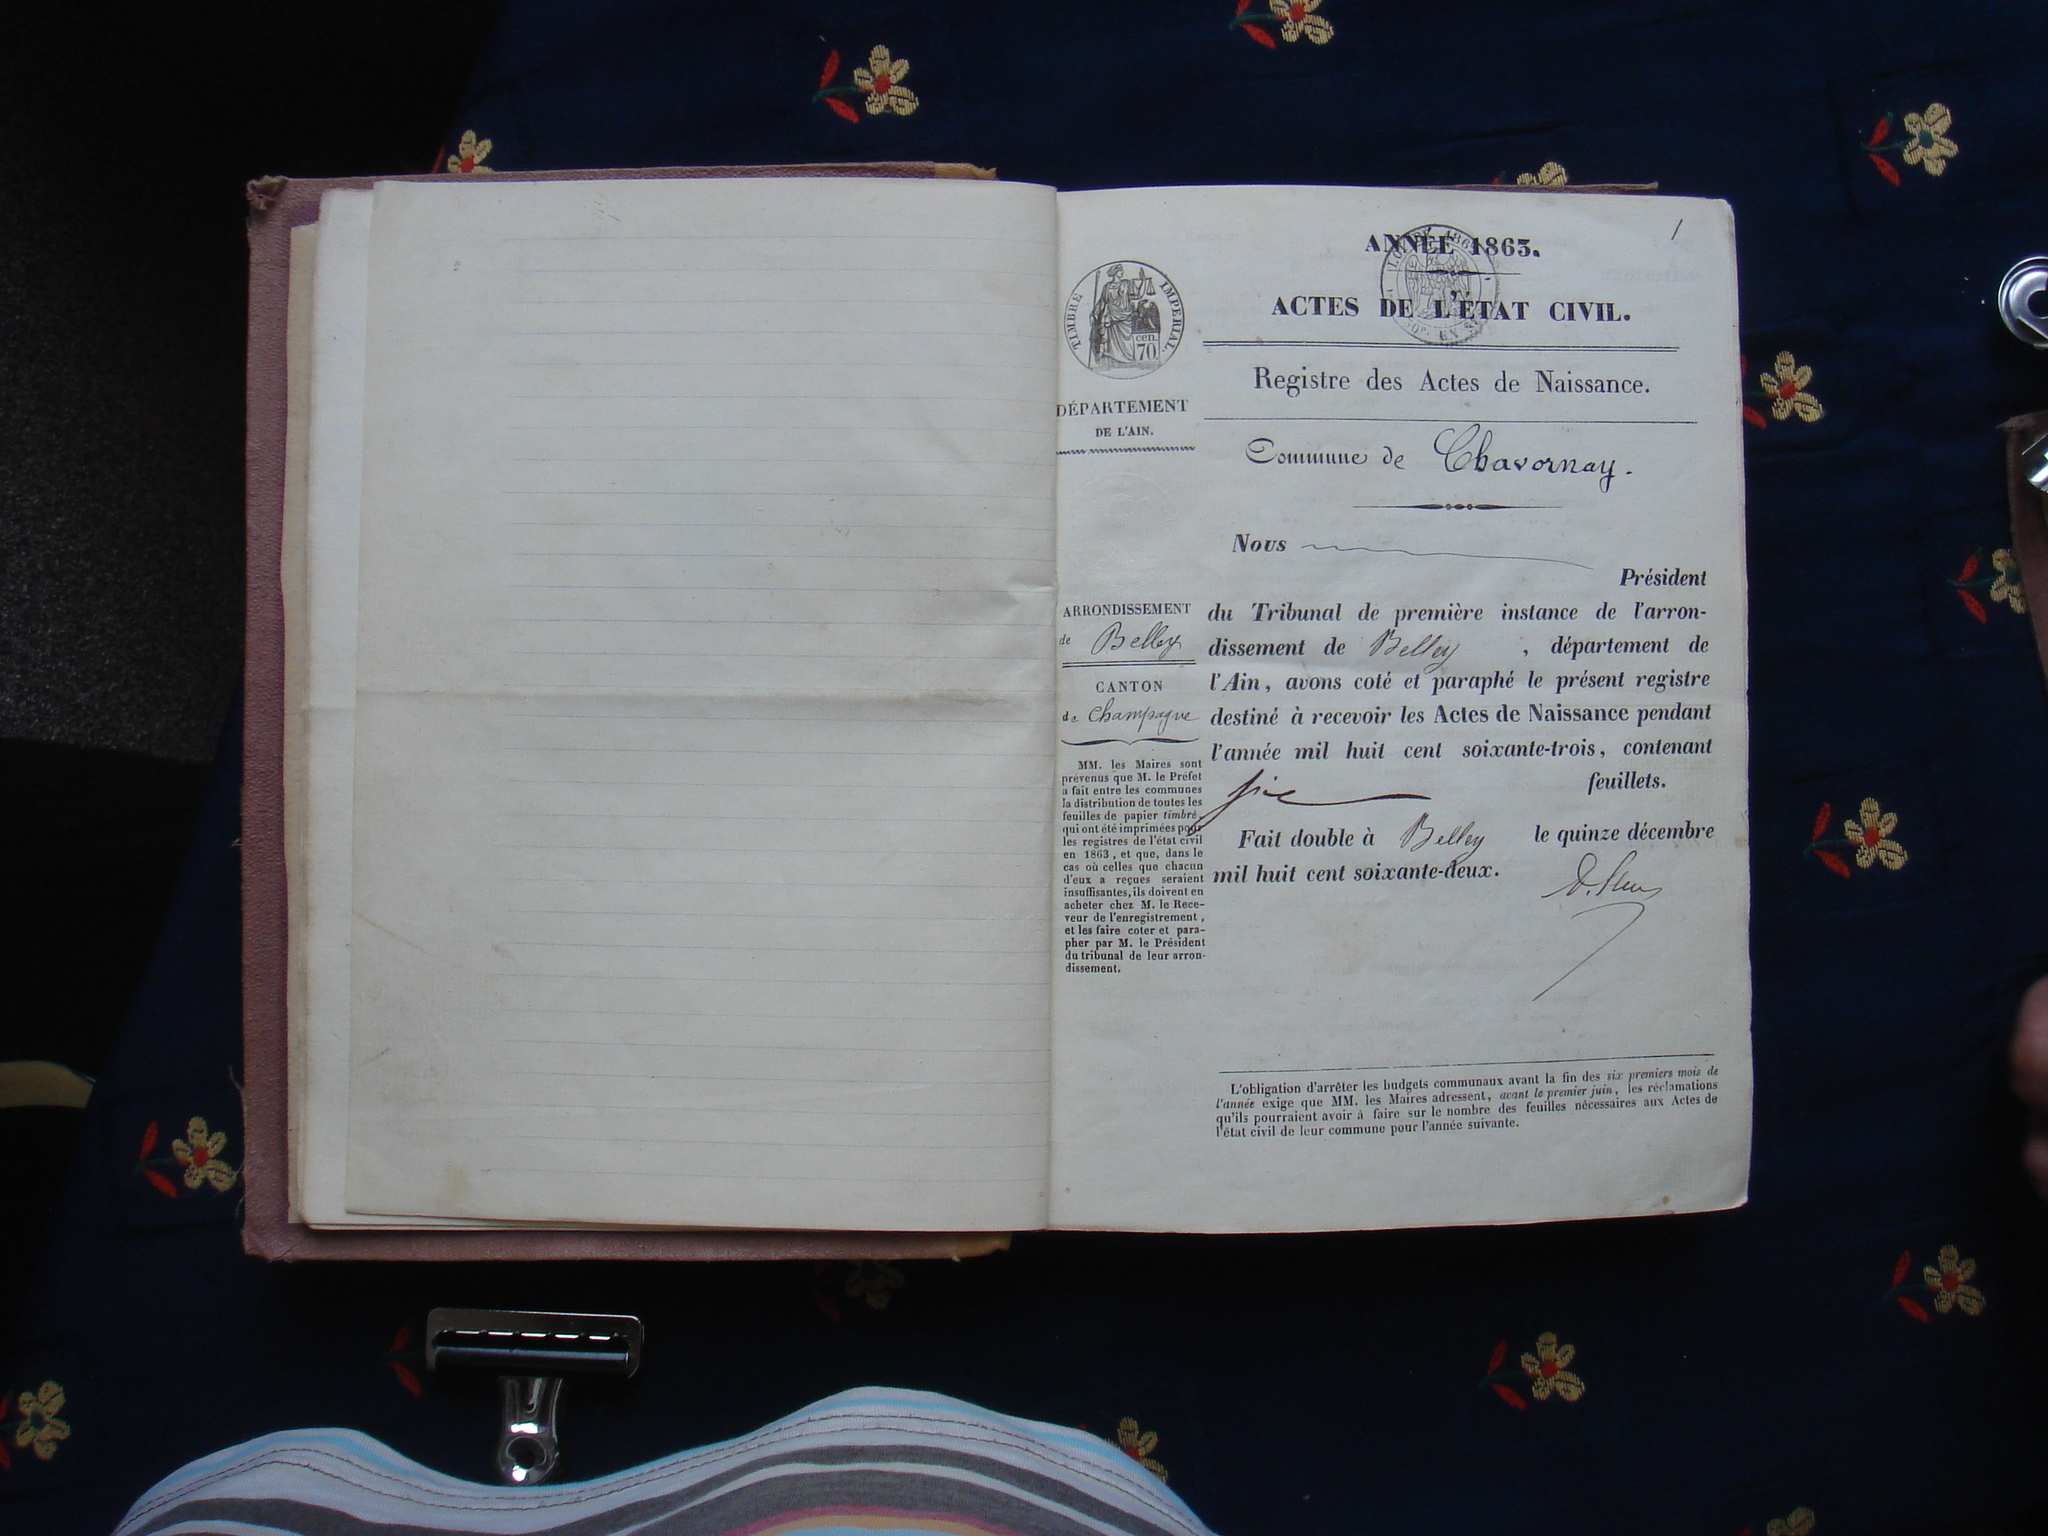 1
ANNÉE 1863.
ACTES DE L'ÉTAT CIVIL.
Registre des Actes de Naissance.
Commune de Chavornay.
TIMBRE IMPÉRIAL.
cen.
70
DÉPARTEMENT
DE L'AIN.
ARRONDISSEMENT
de Belley
CANTON
de Champagne
MM. les Maires sont
prévenus que M. le Préfet
a fait entre les communes
la distribution de toutes les
feuilles de papier timbré,
qui ont été imprimées pour
les registres de l'état civil
en 1863, et que, dans le
cas où celles que chacun
d'eux a reçues seraient
insuffisantes, ils doivent en
acheter chez M. le Rece-
veur de l'enregistrement,
et les faire coter et para-
pher par M. le Président
du tribunal de leur arron-
dissement.
Nous
Président
du Tribunal de première instance de l'arron-
dissement de Belley, département de
l'Ain, avons coté et paraphé le présent registre
destiné à recevoir les Actes de Naissance pendant
l'année mil huit cent soixante-trois, contenant
feuillets.
Fait double à Belley le quinze décembre
mil huit cent soixante-deux.
L'obligation d'arrêter les budgets communaux avant la fin des six premiers mois de
l'année exige que MM. les Maires adressent, avant le premier juin, les réclamations
qu'ils pourraient avoir à faire sur le nombre des feuilles nécessaires aux Actes de
l'état civil de leur commune pour l'année suivante.